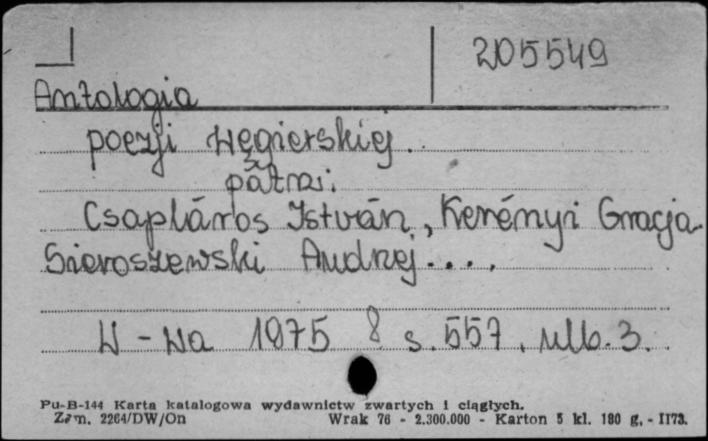 205549
Antologia
poezji węgierskiej.
patrz:
Csapláros István, Kerényi Gracja
Sieroszewski Andrzej....
W-wa 1975 8 s. 557, nlb. 3.
Pu-B-144 Karta katalogowa wydawnictw zwartych i ciągłych.
Zam. 2264/DW/On Wrak 76 - 2.300.000 - Karton 5 kl. 180 g. - II73.